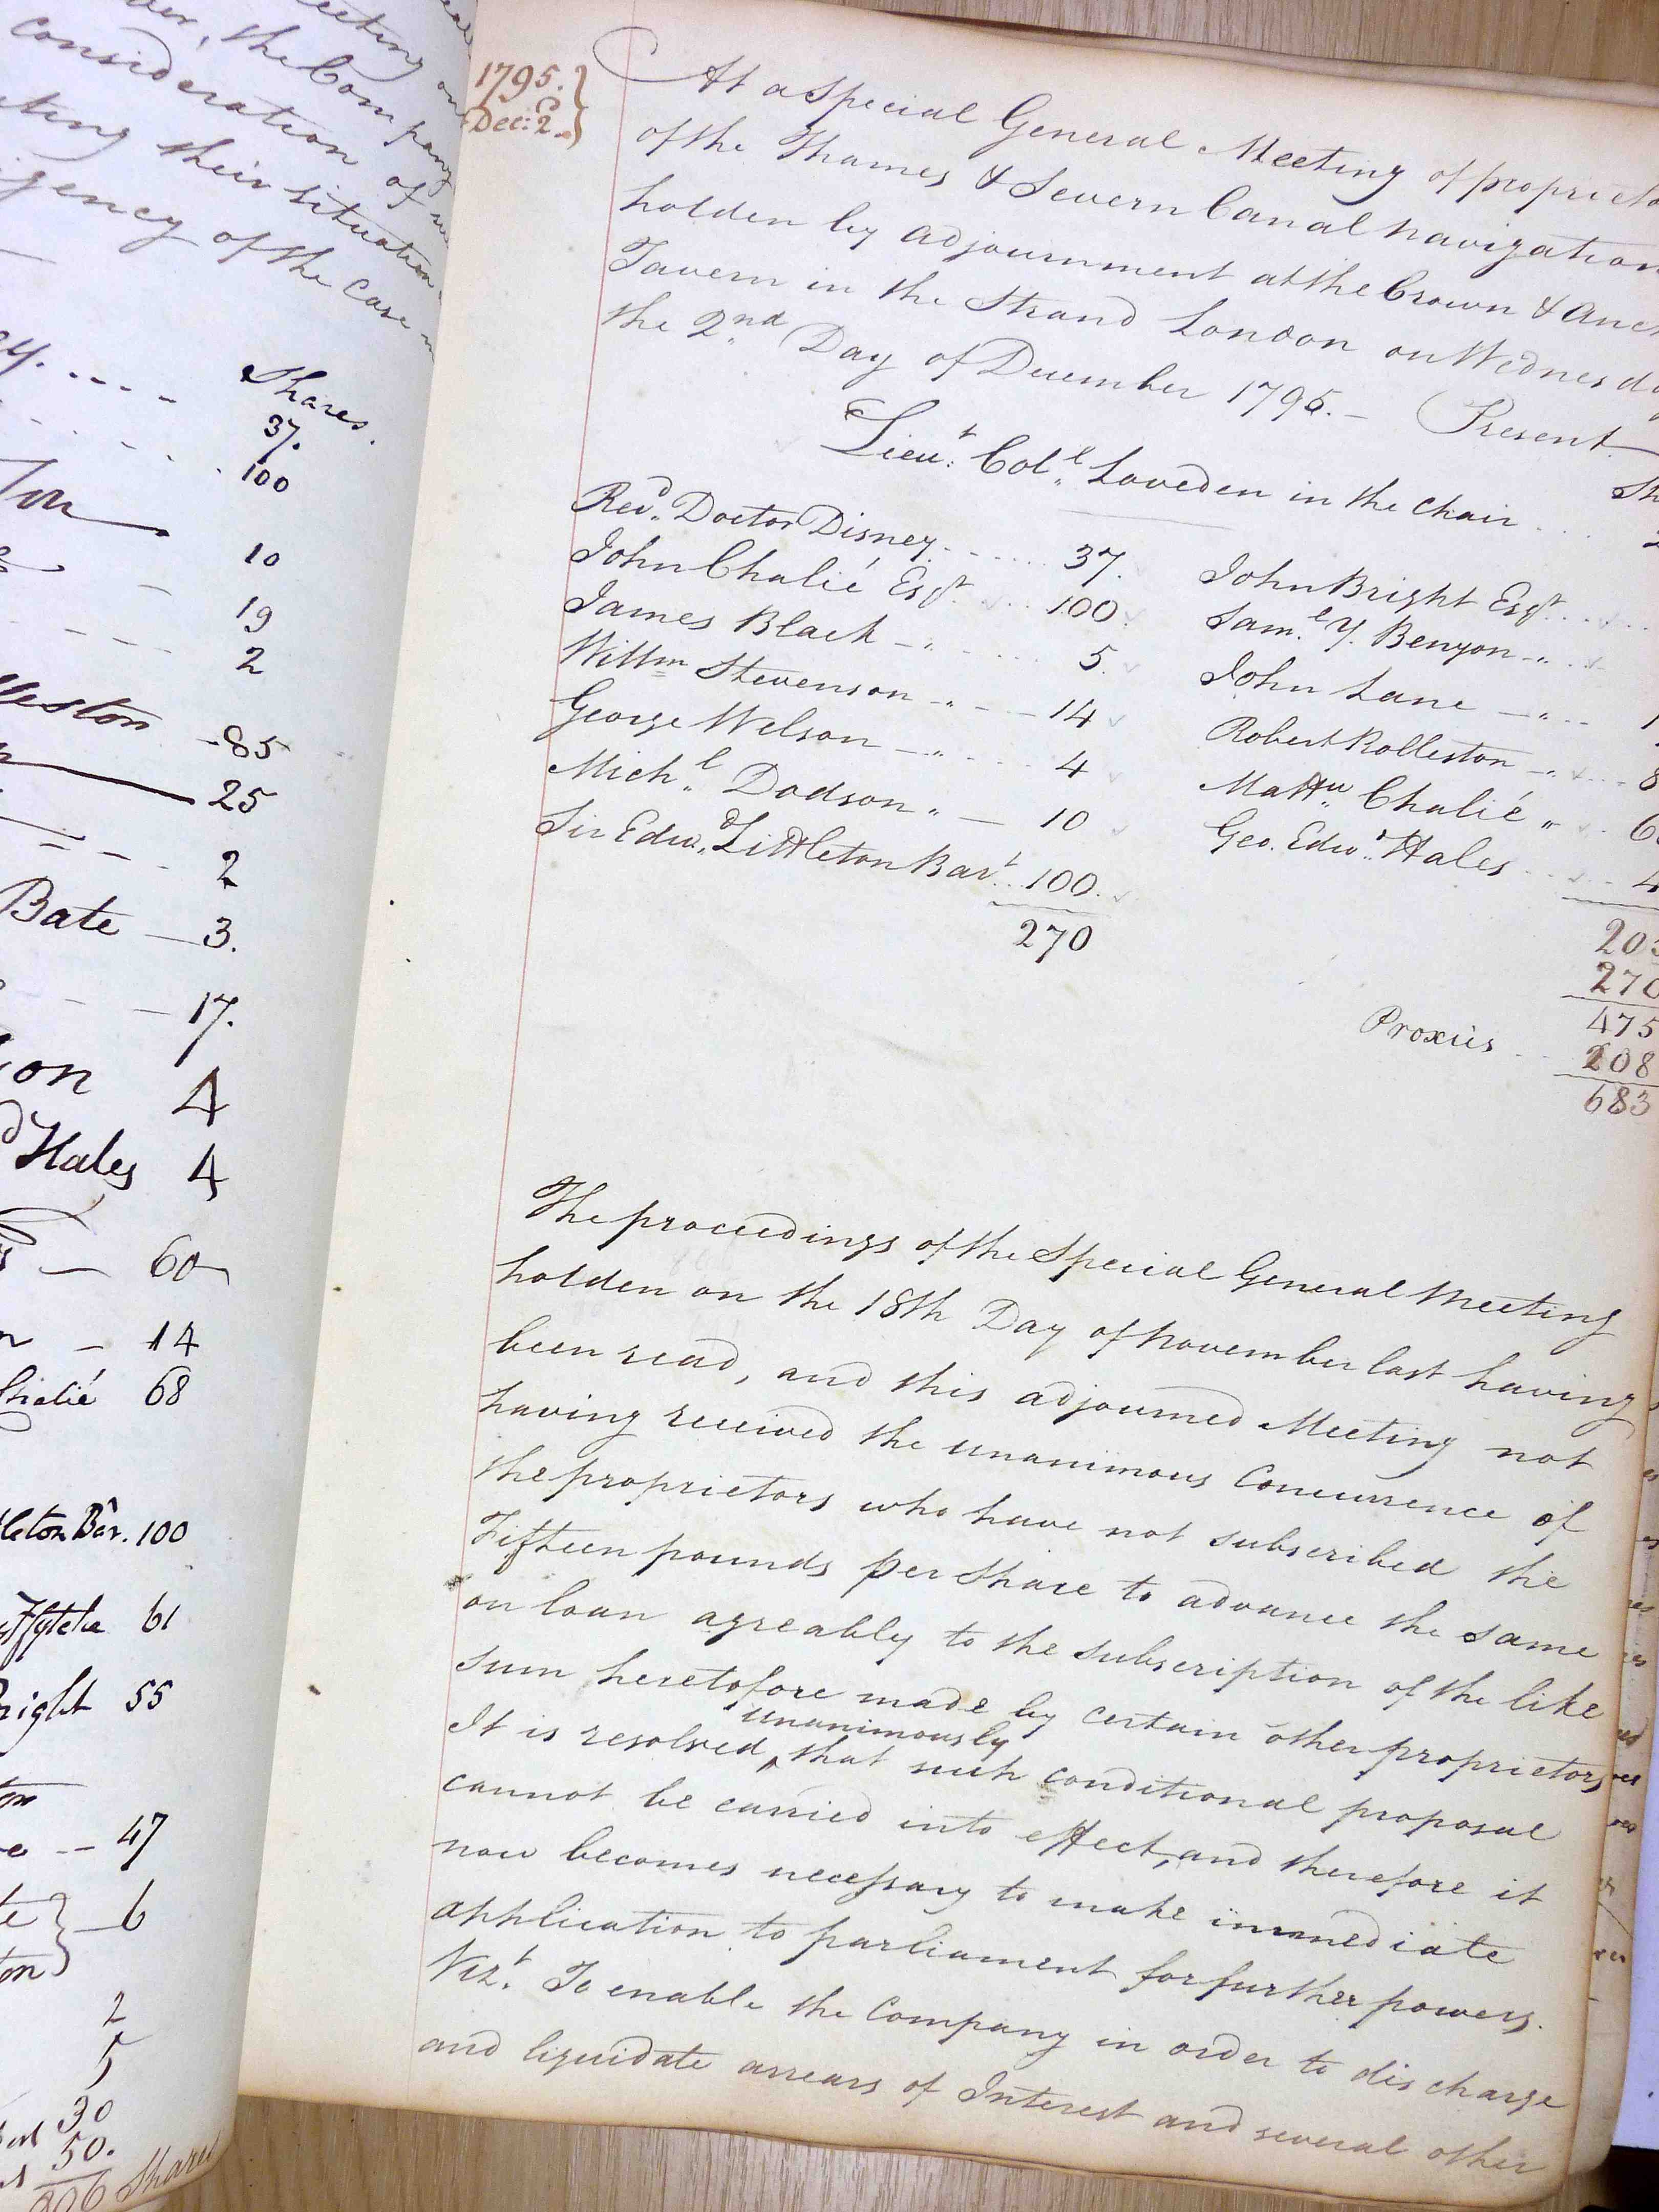 consideration of
their situation
of the Case
Shares.
37.
100
10
19
2
85
25
2
Bate 3.
17.
4
Hales 4
60
14
68
Bar. 100
61
55
47
6
2
5
30
50.
Shares
1795.
Dec: 2.
At a Special General Meeting of
of the Thames & Severn Canal Navigation
holden by adjournment at the Crown &
Tavern in the Strand London on
the 2nd Day of December 1795. Present
Lieut. Coll. Loveden in the Chair
Revd. Doctor Disney 37.
John Chalié Esqr. 100.
James Black " 5.
Willm Stevenson " 14
George Welson " 4
Michl. Dodson " 10
Sir Edwd. Littleton Bart. 100.
270
John Bright Esqr.
Saml. Y. Benyon "
John Lane "
Robert Rolleston "
Mattw. Chalié "
Geo. Edwd. Hales
475
Proxies 208
683
The proceedings of the Special General Meeting
holden on the 18th Day of November last having
been read, and this adjourned Meeting not
having received the unanimous Concurrence of
the proprietors who have not subscribed the
Fifteen pounds per Share to advance the same
on loan agreably to the subscription of the like
sum heretofore made by certain other proprietors
It is resolved unanimously that such conditional proposal
cannot be carried into effect, and therefore it
now becomes necessary to make immediate
application to parliament for further powers.
Vizt. To enable the Company in order to discharge
and liquidate arrears of Interest and several other